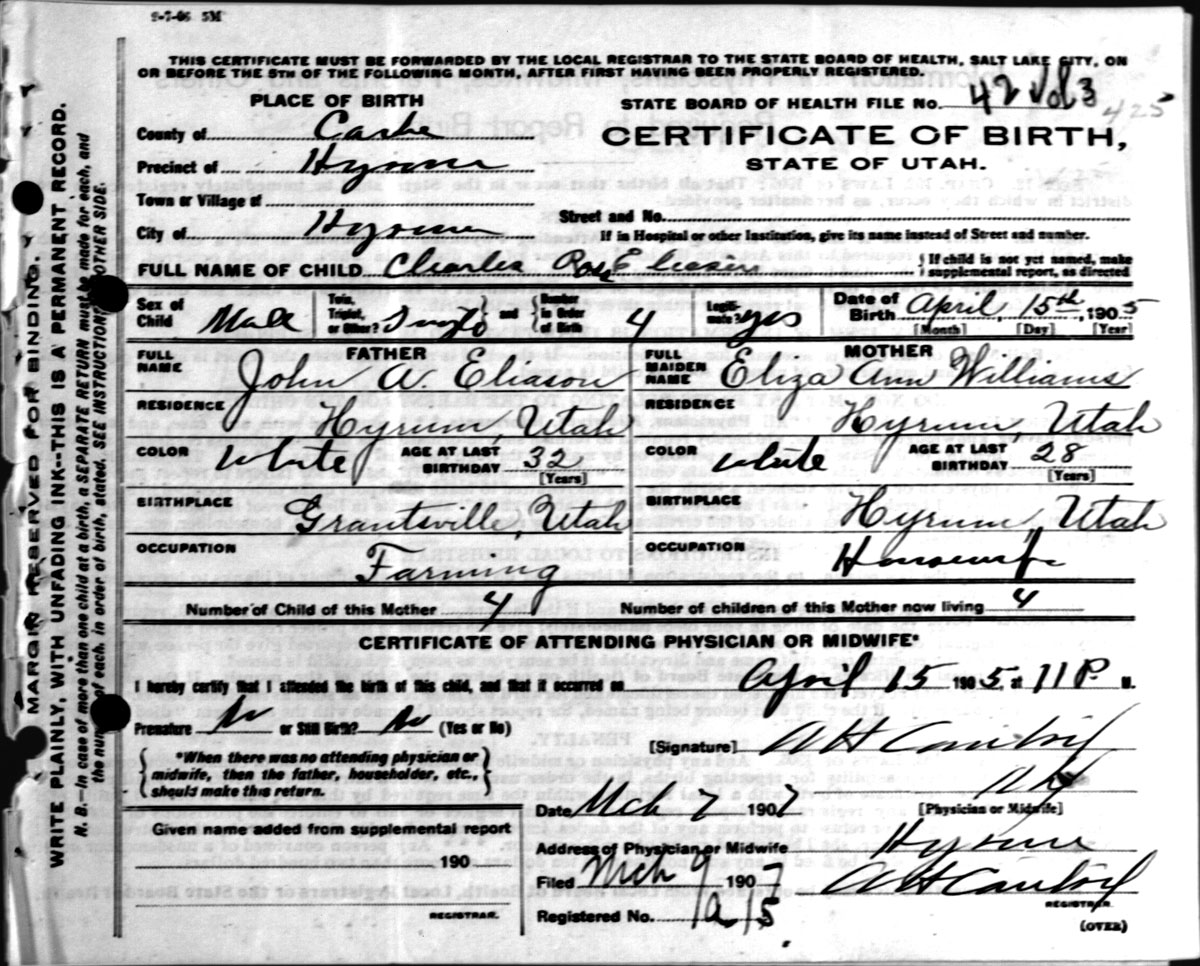 9-7-06 5M
THIS CERTIFICATE MUST BE FORWARDED BY THE LOCAL REGISTRAR TO THE STATE BOARD OF HEALTH, SALT LAKE CITY, ON
OR BEFORE THE 5TH OF THE FOLLOWING MONTH, AFTER FIRST HAVING BEEN PROPERLY REGISTERED.
PLACE OF BIRTH
STATE BOARD OF HEALTH FILE No. 42 Vol 3 425
County of Cache
CERTIFICATE OF BIRTH,
Precinct of Hyrum
STATE OF UTAH.
Town or Village of
Street and No.
City of Hyrum
If in Hospital or other Institution, give its name instead of Street and number.
FULL NAME OF CHILD Charles Roy Eliason
{ If child is not yet named, make supplemental report, as directed
Sex of Child Male
Twin, Triplet, or Other? and Number in Order of Birth 4
Legitimate? yes
Date of Birth April, 15th, 1905
[Month] [Day] [Year]
FATHER
MOTHER
FULL NAME John A. Eliason
FULL MAIDEN NAME Eliza Ann Williams
RESIDENCE Hyrum, Utah
RESIDENCE Hyrum, Utah
COLOR White AGE AT LAST BIRTHDAY 32 [Years]
COLOR White AGE AT LAST BIRTHDAY 28 [Years]
BIRTHPLACE Grantsville, Utah
BIRTHPLACE Hyrum, Utah
OCCUPATION Farming
OCCUPATION Housewife
Number of Child of this Mother 4 Number of children of this Mother now living 4
CERTIFICATE OF ATTENDING PHYSICIAN OR MIDWIFE*
I hereby certify that I attended the birth of this child, and that it occurred on April 15 1905, at 11 P M.
Premature No or Still Birth? No (Yes or No)
[Signature] A H
*When there was no attending physician or
midwife, then the father, householder, etc.,
should make this return.
[Physician or Midwife]
Date Mch 7 1907
Given name added from supplemental report
190
REGISTRAR.
Address of Physician or Midwife Hyrum
Filed Mch 9 1907 A H
REGISTRAR.
Registered No.
(OVER)
MARGIN RESERVED FOR BINDING.
WRITE PLAINLY, WITH UNFADING INK--THIS IS A PERMANENT RECORD.
N. B.--In case of more than one child at a birth, a SEPARATE RETURN must be made for each, and
the number of each, in order of birth, stated. SEE INSTRUCTIONS OTHER SIDE.